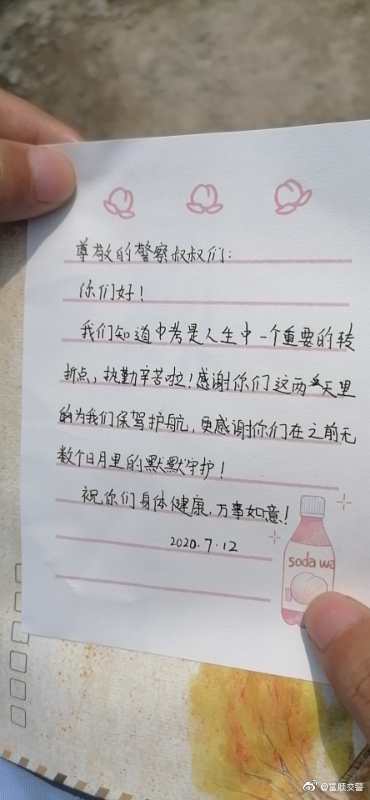 尊敬的警察叔叔们:
你们好!
我们知道中考是人生中一个重要的转
折点,执勤辛苦啦!感谢你们这两天里
的为我们保驾护航,更感谢你们在之前无
数个日月里的默默守护!
祝你们身体健康,万事如意!
2020.7.12
soda wa
@富顺交警